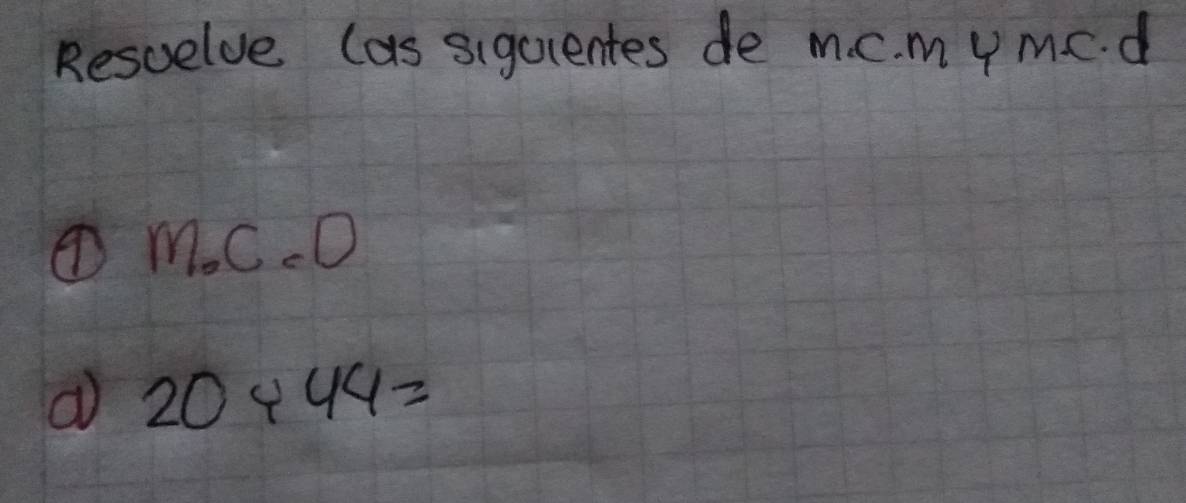 Resuelve las siguientes de m.c.m y m.c.d
① M.C.D
a) 20 y 44=